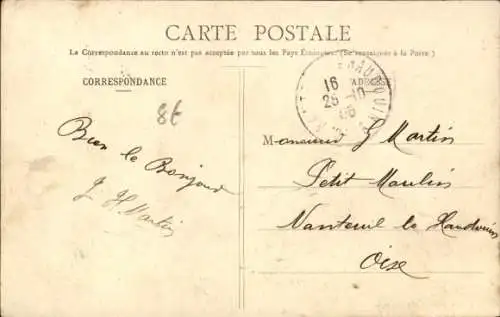 CARTE POSTALE
La Correspondance au recto n'est pas acceptée par tous les Pays Étrangers. (Se renseigner à la Poste.)
CORRESPONDANCE
ADRESSE
8€
16
25 -10
06
Bien le Bonjour
J H Martin
Monsieur G Martin
Petit Moulin
Nanteuil le Haudouin
Oise